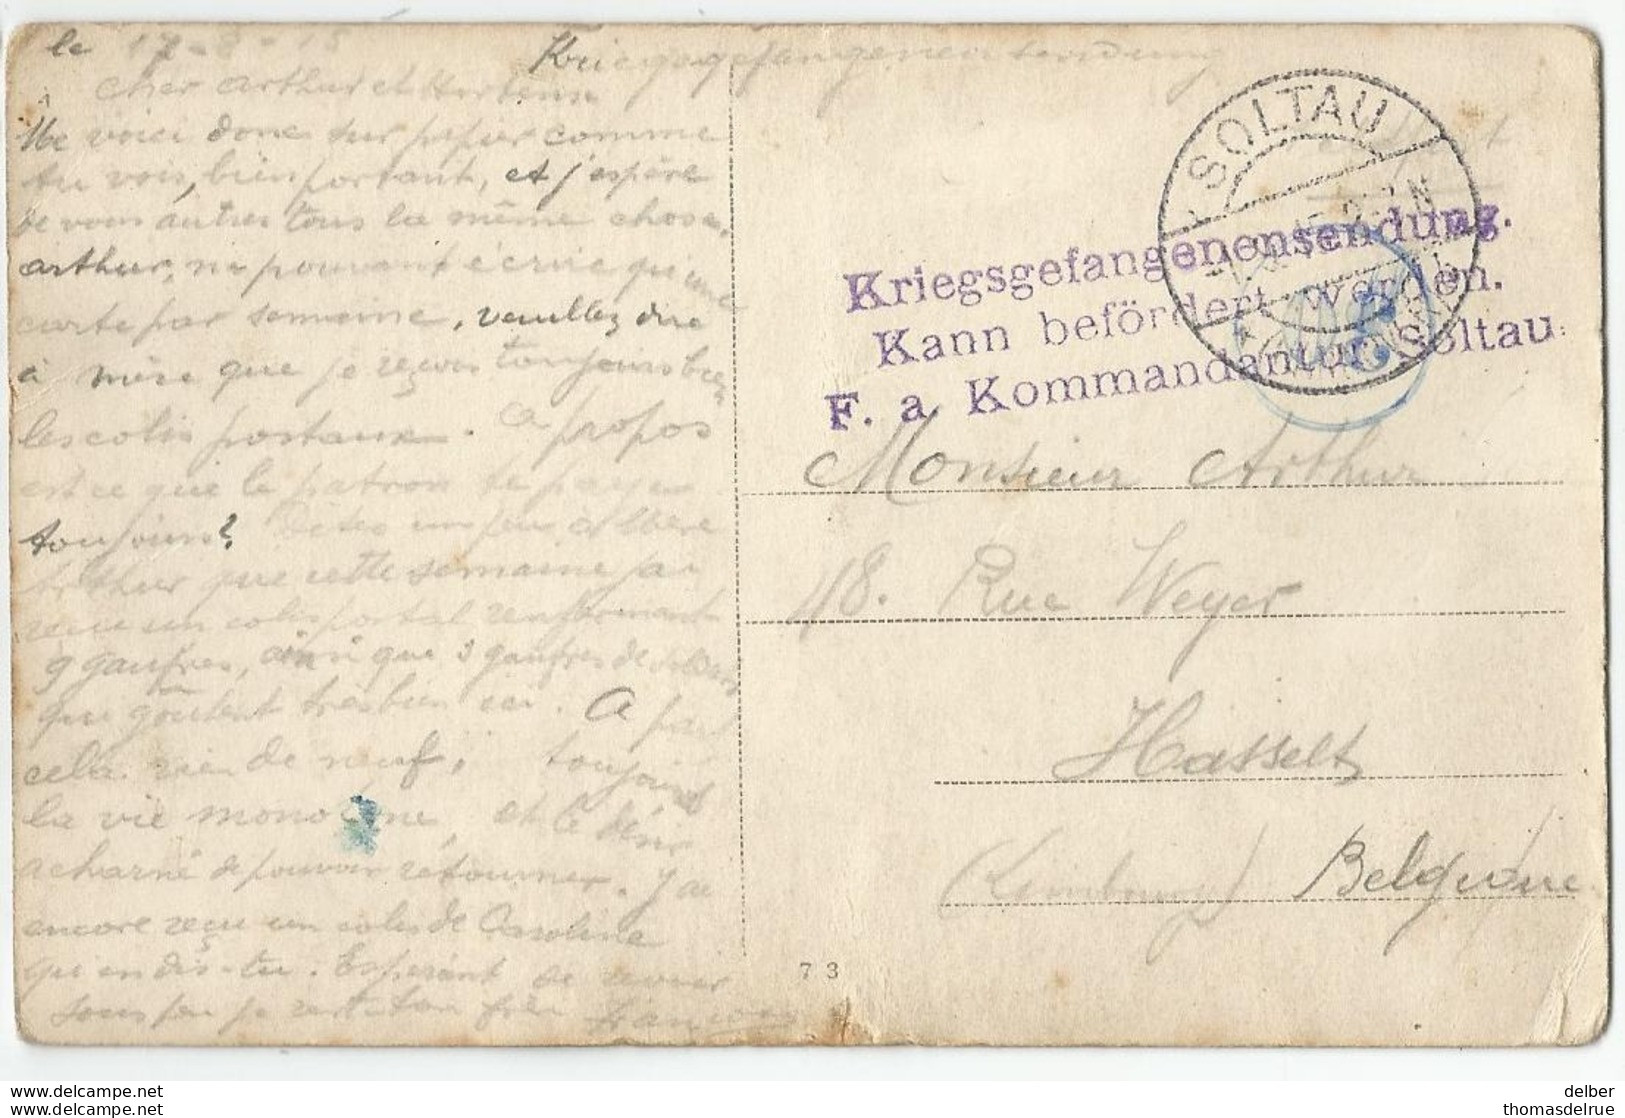 le 17-8-15
Kriegsgefangenensendung
Cher Arthur et Hortense
Me voici donc sur papier comme
tu vois, bien portant, et j'espère
de vous autres tous la même chose,
arthur, ne pouvant écrire qu'une
carte par semaine, veuillez dire
à mère que je reçois toujours bien
les colis postaux. A propos
est ce que le patron te paye
toujours? Dites un peu
Arthur que cette semaine j'ai
reçu un colis postal renfermant
9 gaufres, ainsi que 3 gaufres de
qui goûtent très bien ici. A part
cela rien de neuf, toujours
la vie monotone, et le désir
acharné de pouvoir retourner. J'ai
encore reçu un colis de Caroline
qu'en dis-tu. Espérant de revoir
sous peu je reste ton frère François
SOLTAU
Kriegsgefangenensendung.
Kann befördert werden.
F. a. Kommandantur Soltau.
Monsieur Arthur
48. Rue Weyer
Hasselt
(Limbourg) Belgique
73
delber
thomasdelrue